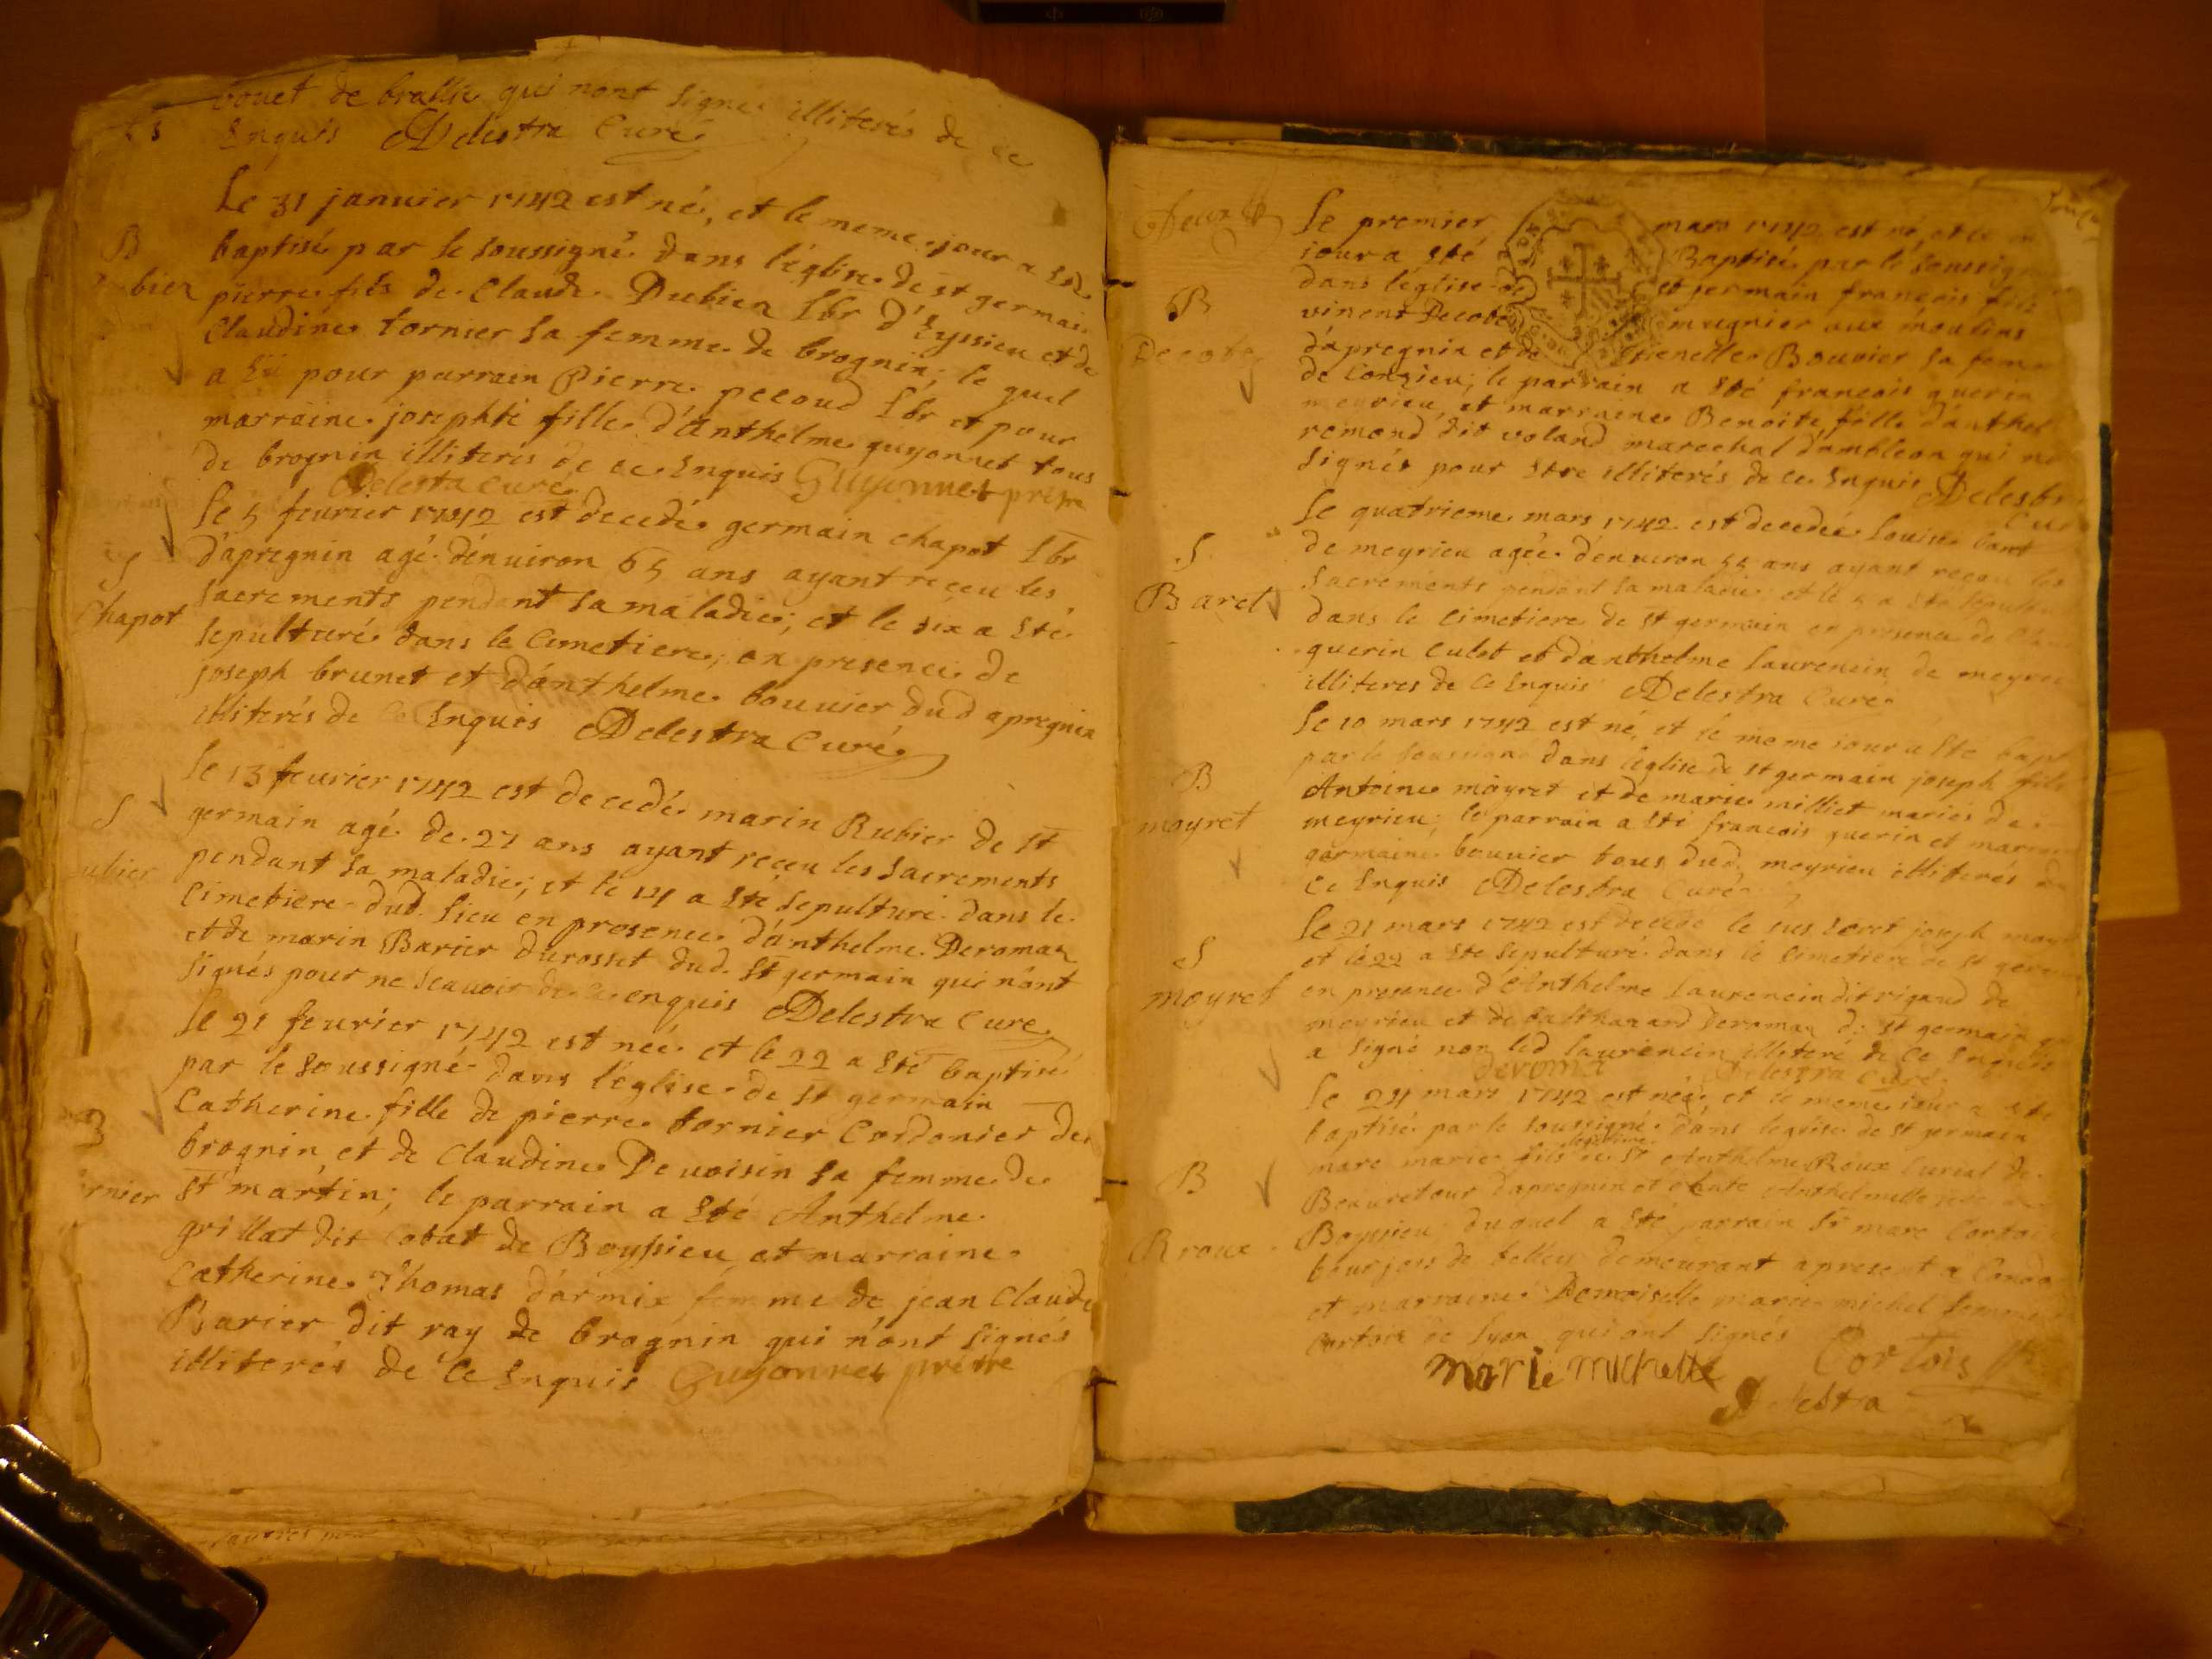 bouet de qui nont signé illiterés de ce
enquis Delestra Curé
Le 31 janvier 1742 est né, et le meme jour a été
B
baptisé par le soussigné dans l'église de st germain
bier
pierre fils de Claude Dubier lbr d'Eyssieu et de
Claudine tornier sa femme de brognin; le quel
a eü pour parrain Pierre pecoud lbr et pour
marraine josephte fille d'Anthelme guyonnet tous
de brognin illiterés de ce enquis Guyonnet prêtre
Delestra curé
Le 5 feurier 1742 est decedé germain chapot lbr
d'apregnin agé d'énuiron 65 ans ayant reçeu les
S
Chapot
sacrements pendant sa maladie; et le six a été
sepulturé dans le Cimetiere; en presence de
joseph brunet et d'anthelme bouuier dud apregnin
illiterés de Ce Enquis Delestra Curé
Le 13 feurier 1742 est decedé marin Rubier de st
S
germain agé de 27 ans ayant reçeu les sacrements
ubier
pendant sa maladie; et le 14 a été sepulturé dans le
Cimetiere dud. lieu en presence d'anthelme Deroman
et de marin Barier durosset dud. st germain qui n'ont
signés pour ne scauoir de ce enquis Delestra Cure
Le 21 feurier 1742 est née et le 22 a été baptisé
par le soussigné dans l'église de st germain
B
Catherine fille de pierre tornier Cordonier de
brognin et de Claudine Deuoisin sa femme de
rnier
st martin; le parrain a été Anthelme
grillat dit cobat de Boyssieu et marraine
Catherine Thomas d'armix femme de jean Claude
Barier dit ray de brognin qui n'ont signés
illiterés de Ce Enquis Guyonnet prêtre
Le premier mars 1742 est né, et le m
jour a été Baptisé par le soussigné
B
dans l'église de st germain françois fils
vincent Decote mugnier aux moulins
Decote
d'apregnin et de Bouvier sa femme
de Conzieu; le parrain a été françois guerin
meyrieu, et marraine Benoite fille d'anthel
remond dit voland marechal d'ambleon qui n
signés pour être illiterés de ce Enquis Delestr
Cu
Le quatrieme mars 1742 est decedée Louise
S
de meyrieu agée d'enuiron 55 ans ayant reçeu les
Baret
sacrements pendant sa maladie; et le 5 a été sepultu
dans le cimetiere de st germain en presence de
guerin culet et d'anthelme laurencin de meyrie
illiteres de Ce Enquis Delestra Curé
Le 10 mars 1742 est né, et le meme jour a été bapt
par le soussigné dans l'église de st germain joseph fils
B
Antoine moyret et de marie milliet mariés de
moyret
meyrieu; le parrain a été francois guerin et marrai
germaine bouuier tous dud, meyrieu illiterés de
Ce Enquis Delestra Curé
Le 21 mars 1742 est decedé le joseph moy
S
et le 22 a été sepulturé dans le Cimetiere de st germ
moyret
en presence d'Anthelme laurencin dit rigaud de
meyrieu et de balthazard deroman de st germain qui
a signé non led laurencin illiteré de Ce Enquis
deroma Delestra Curé
Le 24 mars 1742 est né, et le meme jour a été
baptisé par le soussigné dans l'eglise de st germain
legitime
B
marc marie fils de sr Anthelme Roux Curial de
Beauretour d'apregnin et de Anthelmette
Rroux
Boyssieu duquel a été parrain sr marc Cortois
bourjois de belley demeurant apresent a
et marraine Demoiselle marie michel femme
Cortois de lyon qui ont signés
marie michelle Cortois
Delestra